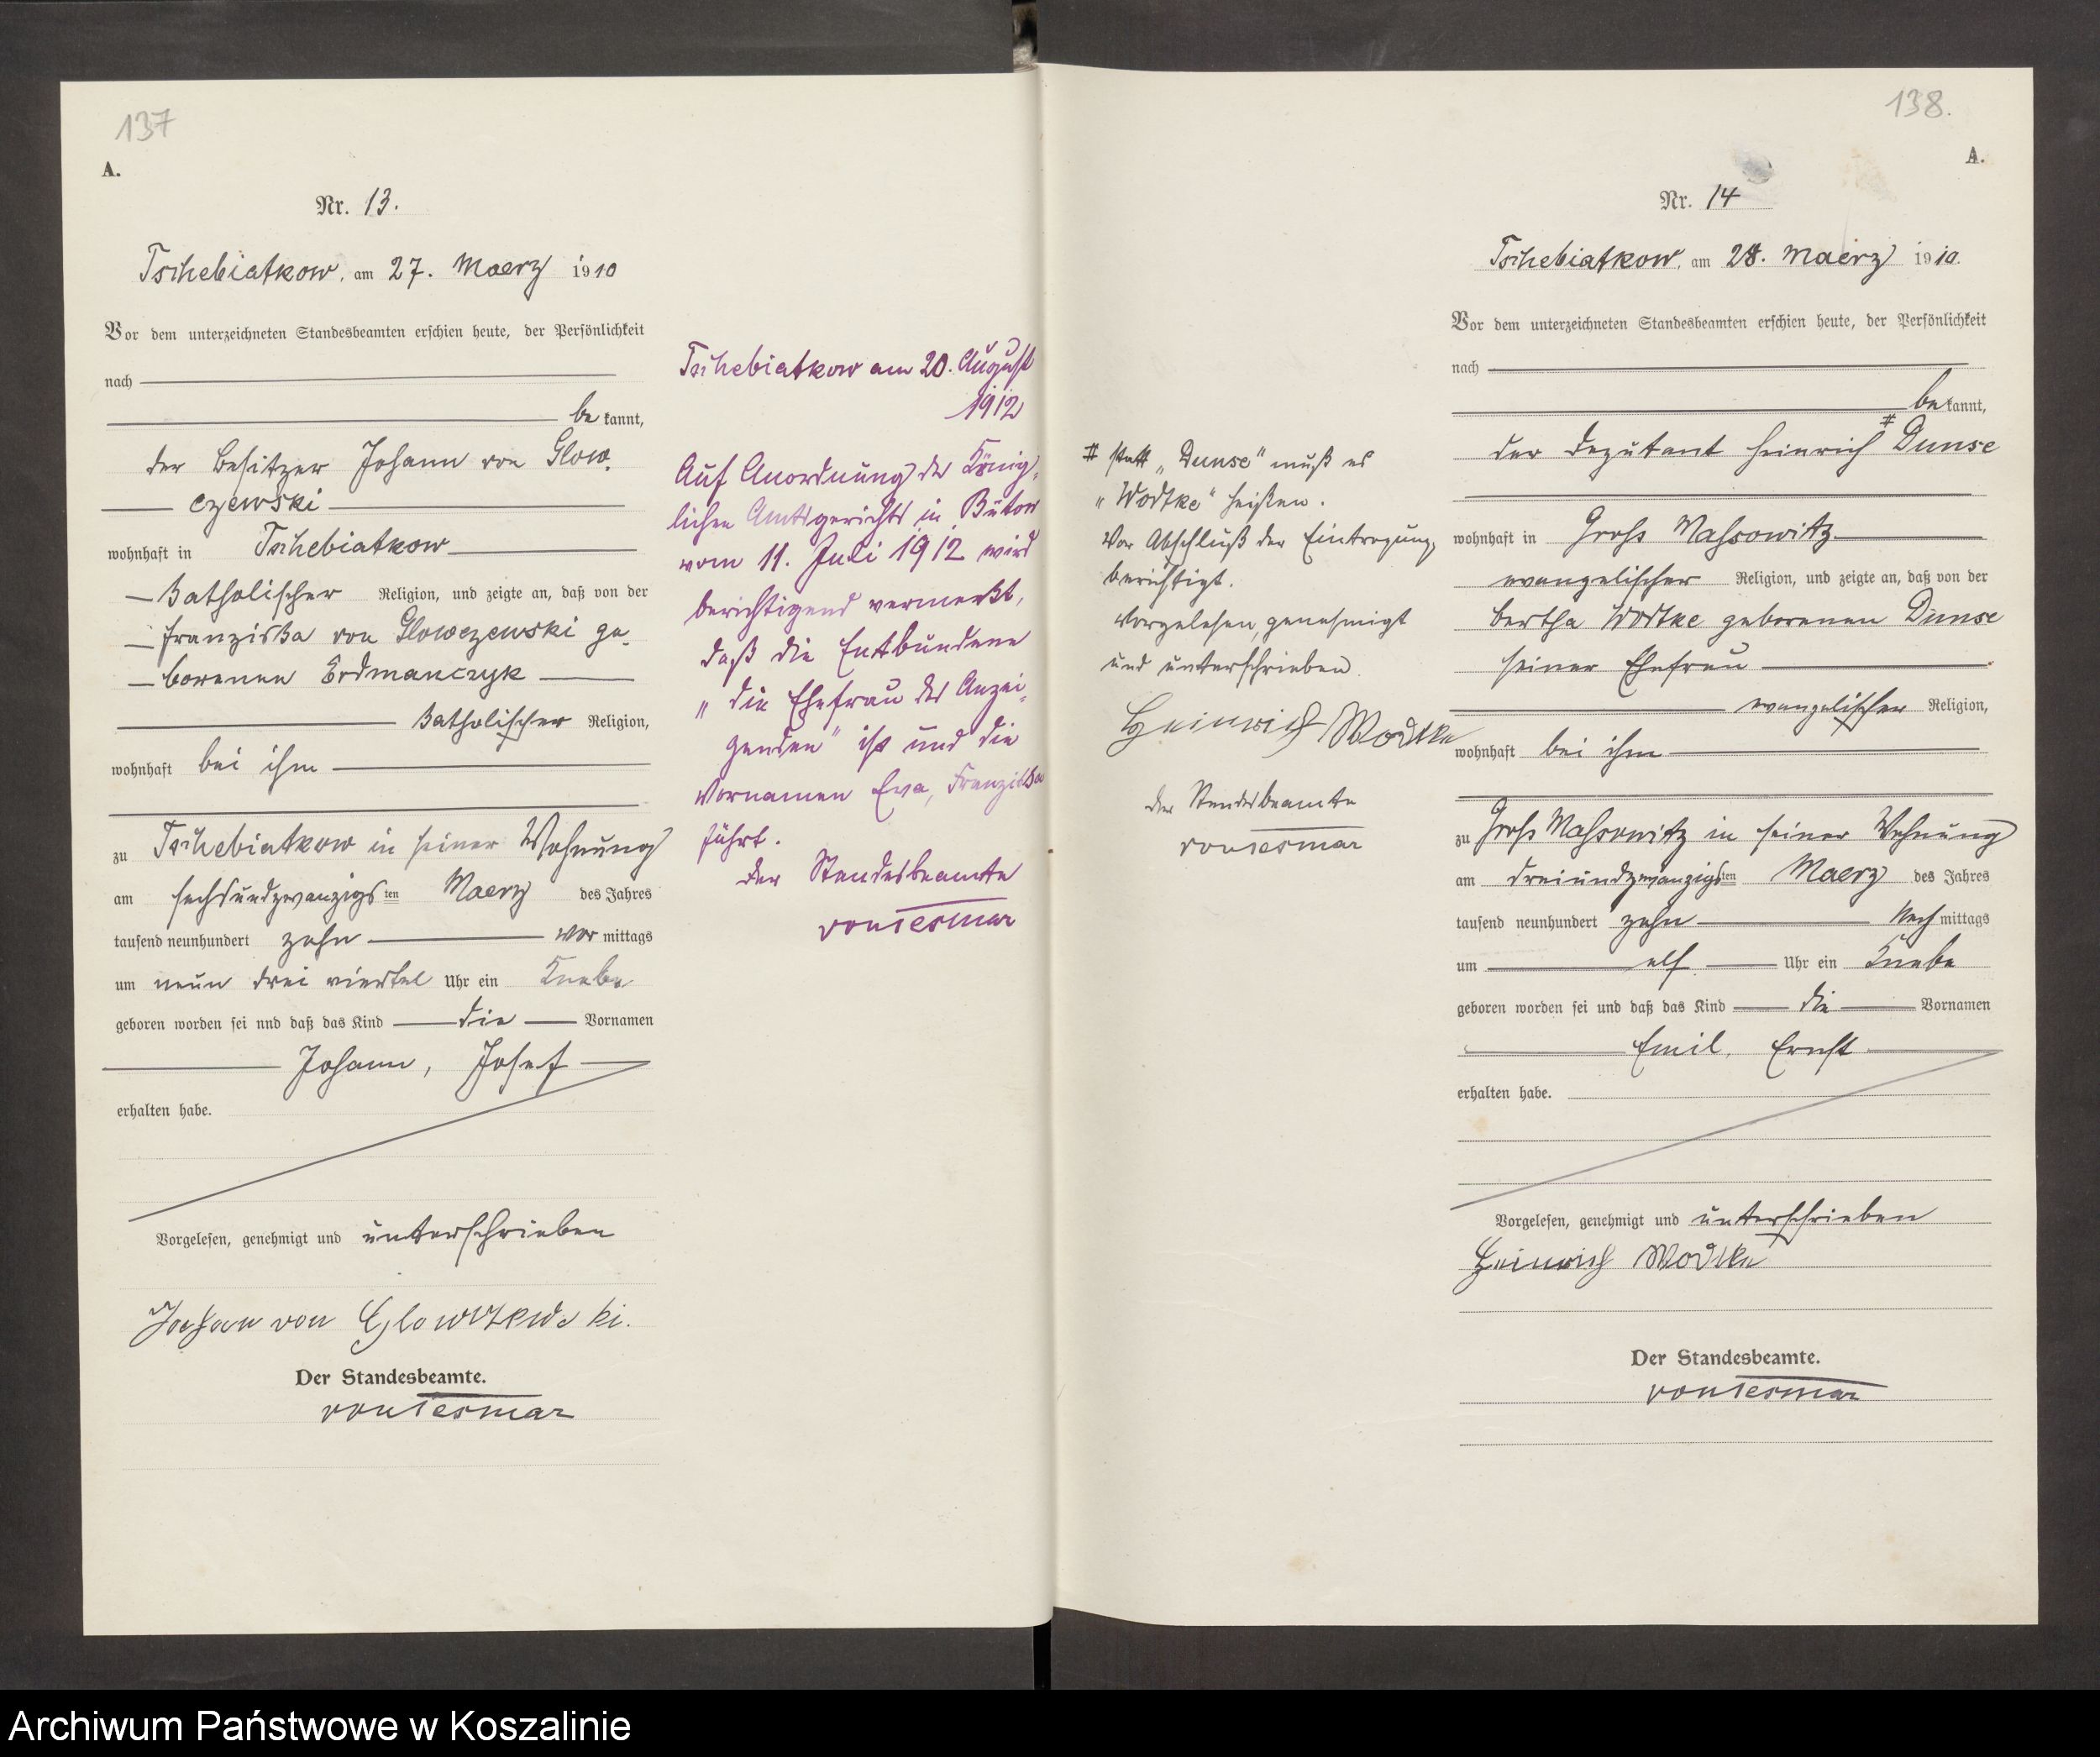 137
A.
Nr. 13.
Tschebiatkow, am 27. Maerz 1910
Vor dem unterzeichneten Standesbeamten erschien heute, der Persönlichkeit
nach
be kannt,
der Besitzer Johann von Glow-
czewski
wohnhaft in Tschebiatkow
katholischer Religion, und zeigte an, daß von der
Franziska von Glowczewski ge-
borenen Erdmanczyk
katholischer Religion,
wohnhaft bei ihm
zu Tschebiatkow in seiner Wohnung
am sechsundzwanzigsten Maerz des Jahres
tausend neunhundert zehn vor mittags
um neun drei viertel Uhr ein Knabe
geboren worden sei nnd daß das Kind die Vornamen
Johann, Josef
erhalten habe.
Vorgelesen, genehmigt und unterschrieben
Johan von Glowczewski.
Der Standesbeamte.
von Tesmar
Tschebiatkow am 20. August
1912
Auf Anordnung des König-
lichen Amtsgerichts in Bütow
vom 11. Juli 1912 wird
berichtigend vermerkt,
daß die Entbundene
„die Ehefrau des Anzei-
genden" ist und die
Vornamen Eva, Franziska
führt.
Der Standesbeamte
von Tesmar
138.
A.
Nr. 14
Tschebiatkow, am 28. Maerz 1910.
Vor dem unterzeichneten Standesbeamten erschien heute, der Persönlichkeit
nach
be kannt,
der Deputant Heinrich # Dunse
wohnhaft in Gross Massowitz
evangelischer Religion, und zeigte an, daß von der
Bertha Wodtke geborenen Dunse
seiner Ehefrau
evangelischer Religion,
wohnhaft bei ihm
zu Gross Massowitz in seiner Wohnung
am dreiundzwanzigsten Maerz des Jahres
tausend neunhundert zehn Nach mittags
um elf Uhr ein Knabe
geboren worden sei und daß das Kind die Vornamen
Emil, Ernst
erhalten habe.
Vorgelesen, genehmigt und unterschrieben
Heinrich Wodtke
Der Standesbeamte.
von Tesmar
# statt „Dunse" muß es
„Wodtke" heißen.
Vor Abschluß der Eintragung
berichtigt.
Vorgelesen, genehmigt
und unterschrieben.
Heinrich Wodtke
Der Standesbeamte
von Tesmar
Archiwum Państwowe w Koszalinie